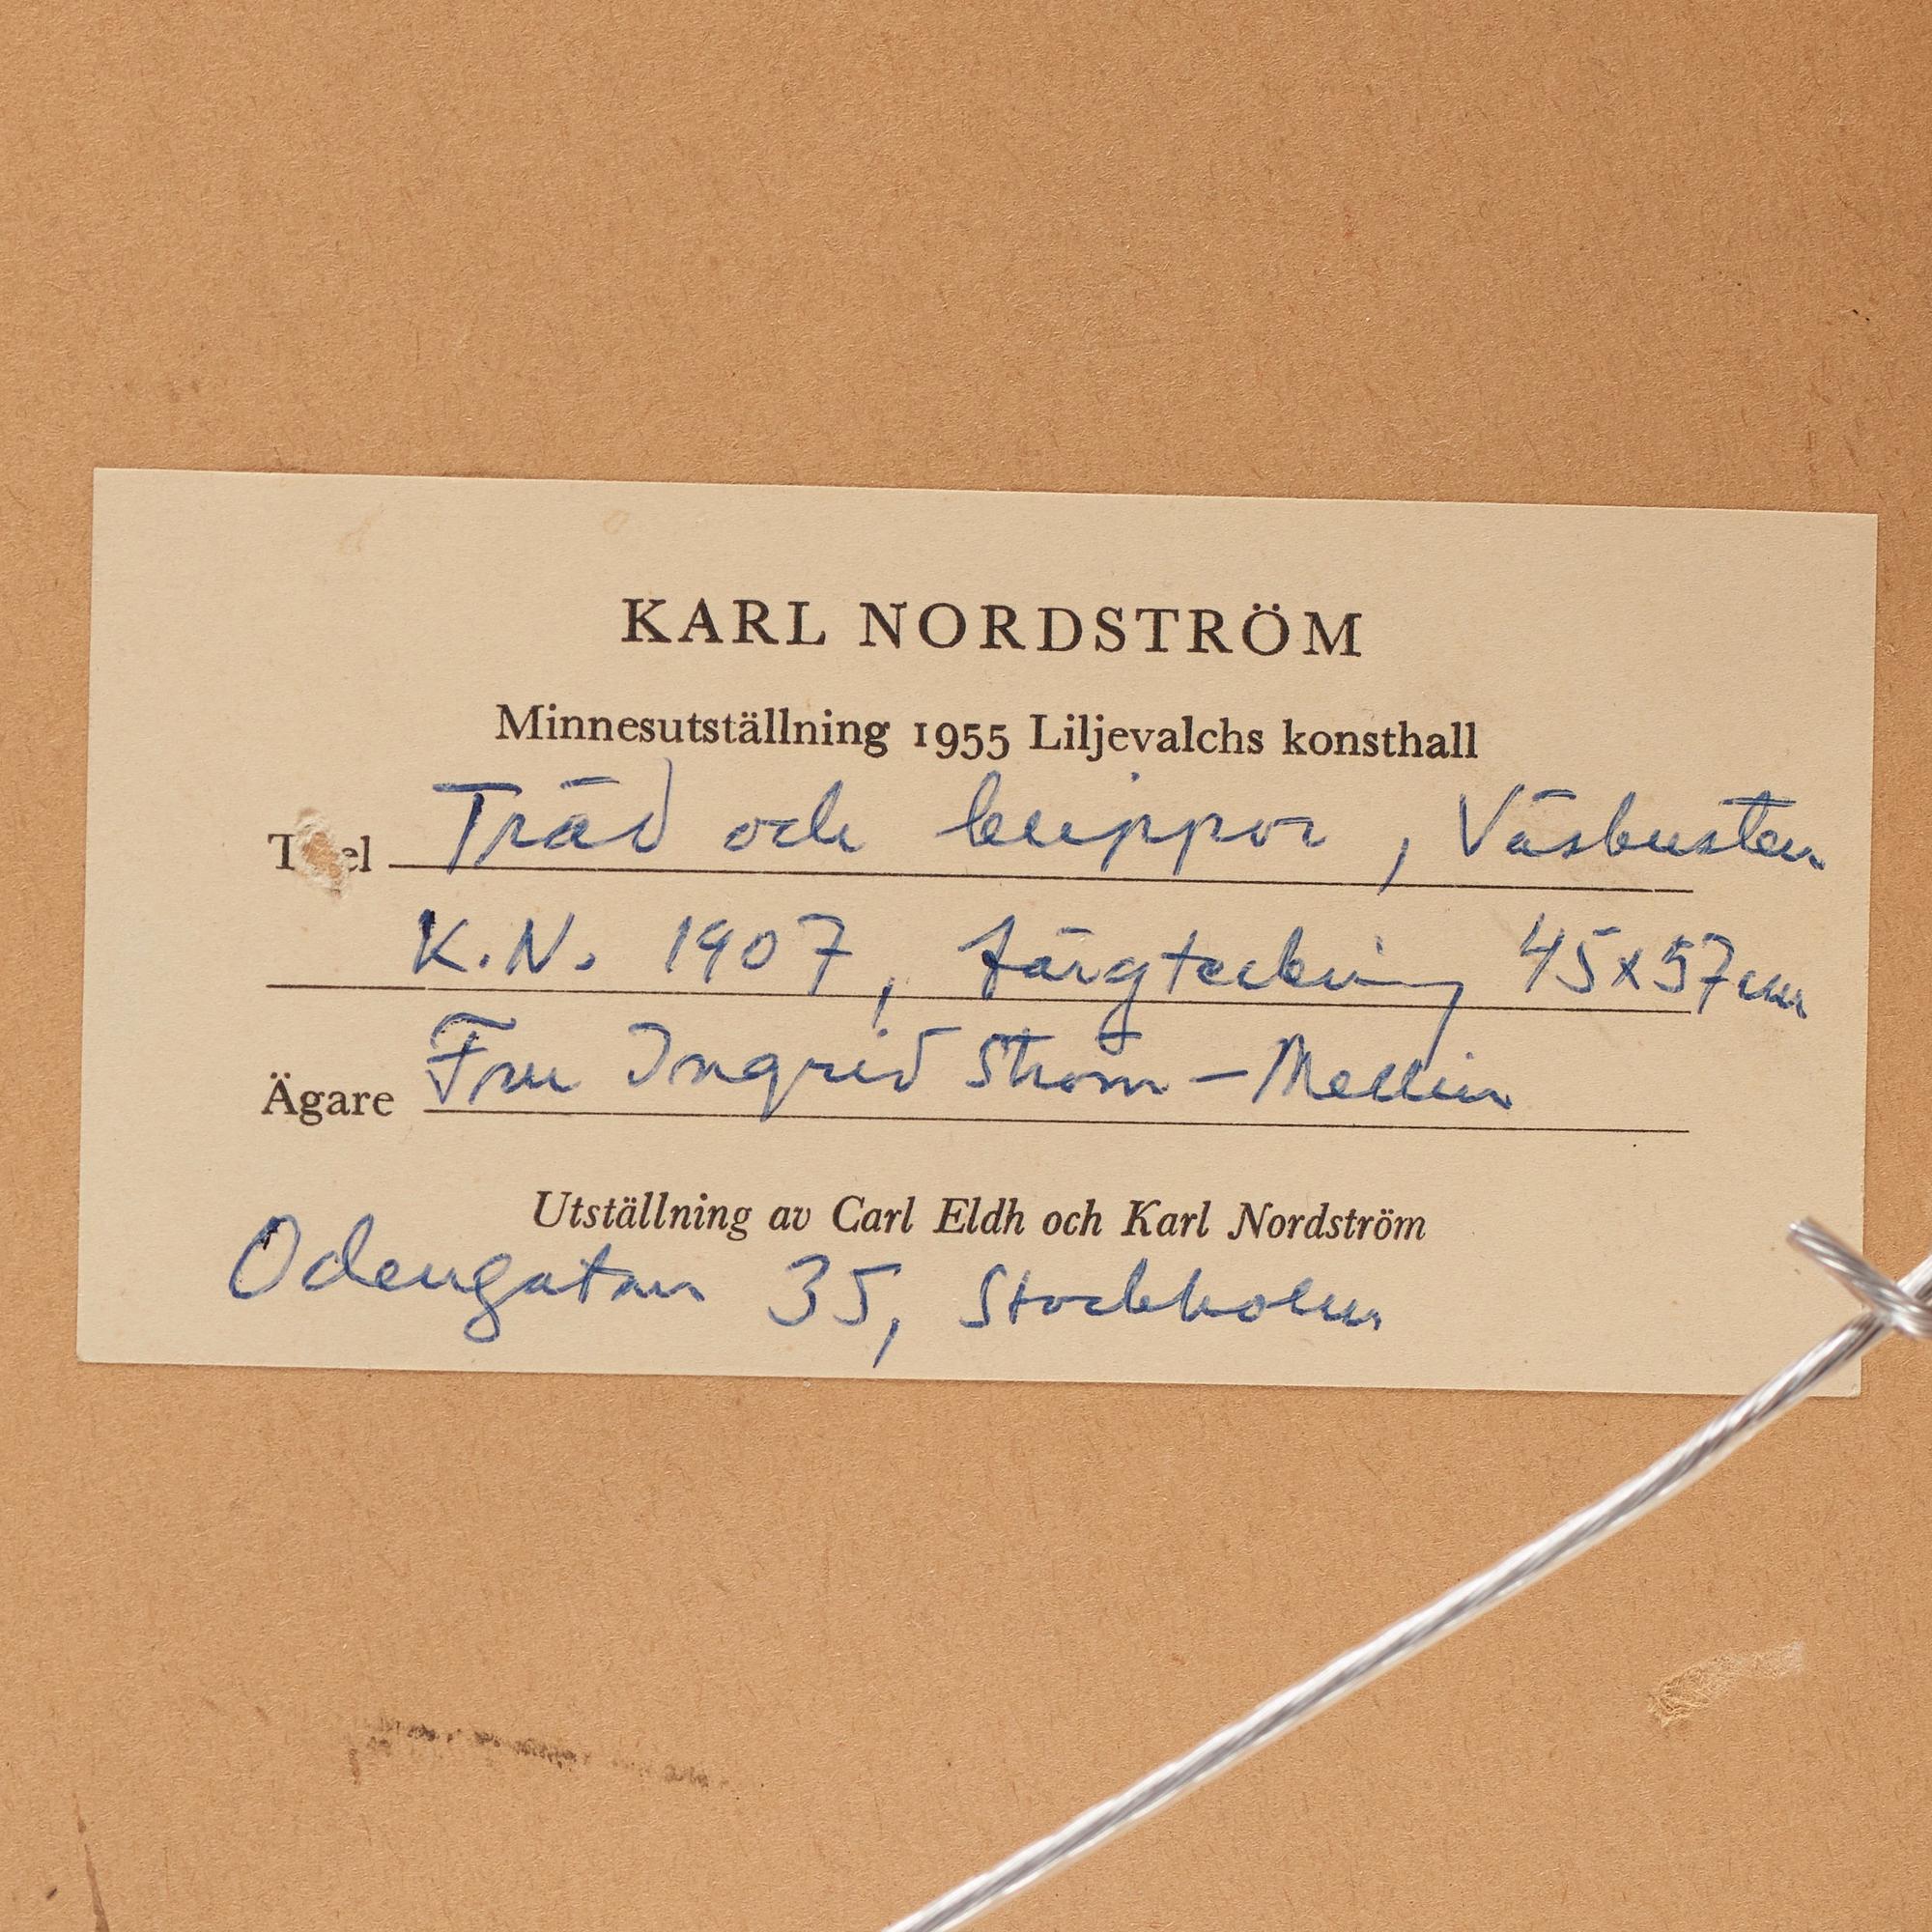 KARL NORDSTRÖM
Minnesutställning 1955 Liljevalchs konsthall
Träd och knippor, Väskusten
K.N. 1907, färgteckning 45x57cm
Ägare Fru Ingrid Ström-Mellin
Utställning av Carl Eldh och Karl Nordström
Odengatan 35, Stockholm